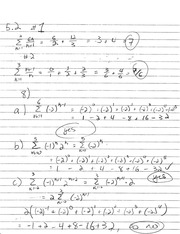 5.2 #1
2 Σ k=1 6k/k+1 = 6/2 + 12/3 = 3+4 = 7
#2
3 Σ k=1 k-1/k = 0/1 + 1/2 + 2/3 = 3/6 + 4/6 = 7/6
8)
a) 6 Σ k=1 (-2)^k-1 = (-2)^0 + (-2)^1 + (-2)^2 + (-2)^3 + (-2)^4 + (-2)^5
1 - 2 + 4 - 8 + 16 - 32
yes
b) 5 Σ k=0 (-1)^k 2^k = 5 Σ k=0 (-2)^k
= (-2)^0 + (-2)^1 + (-2)^2 + (-2)^3 + (-2)^4 + (-2)^5
1 - 2 + 4 - 8 + 16 - 32
yes
c) 3 Σ k=-2 (-1)^k+1 2^k+2 = 3 Σ k=-2 (-2)^k+1 · 2
= 2 3 Σ k=-2 (-2)^k+1
2((-2)^-1 + (-2)^0 + (-2)^1 + (-2)^2 + (-2)^3 + (-2)^4)
= -1 + 2 - 4 + 8 - 16 + 32, no